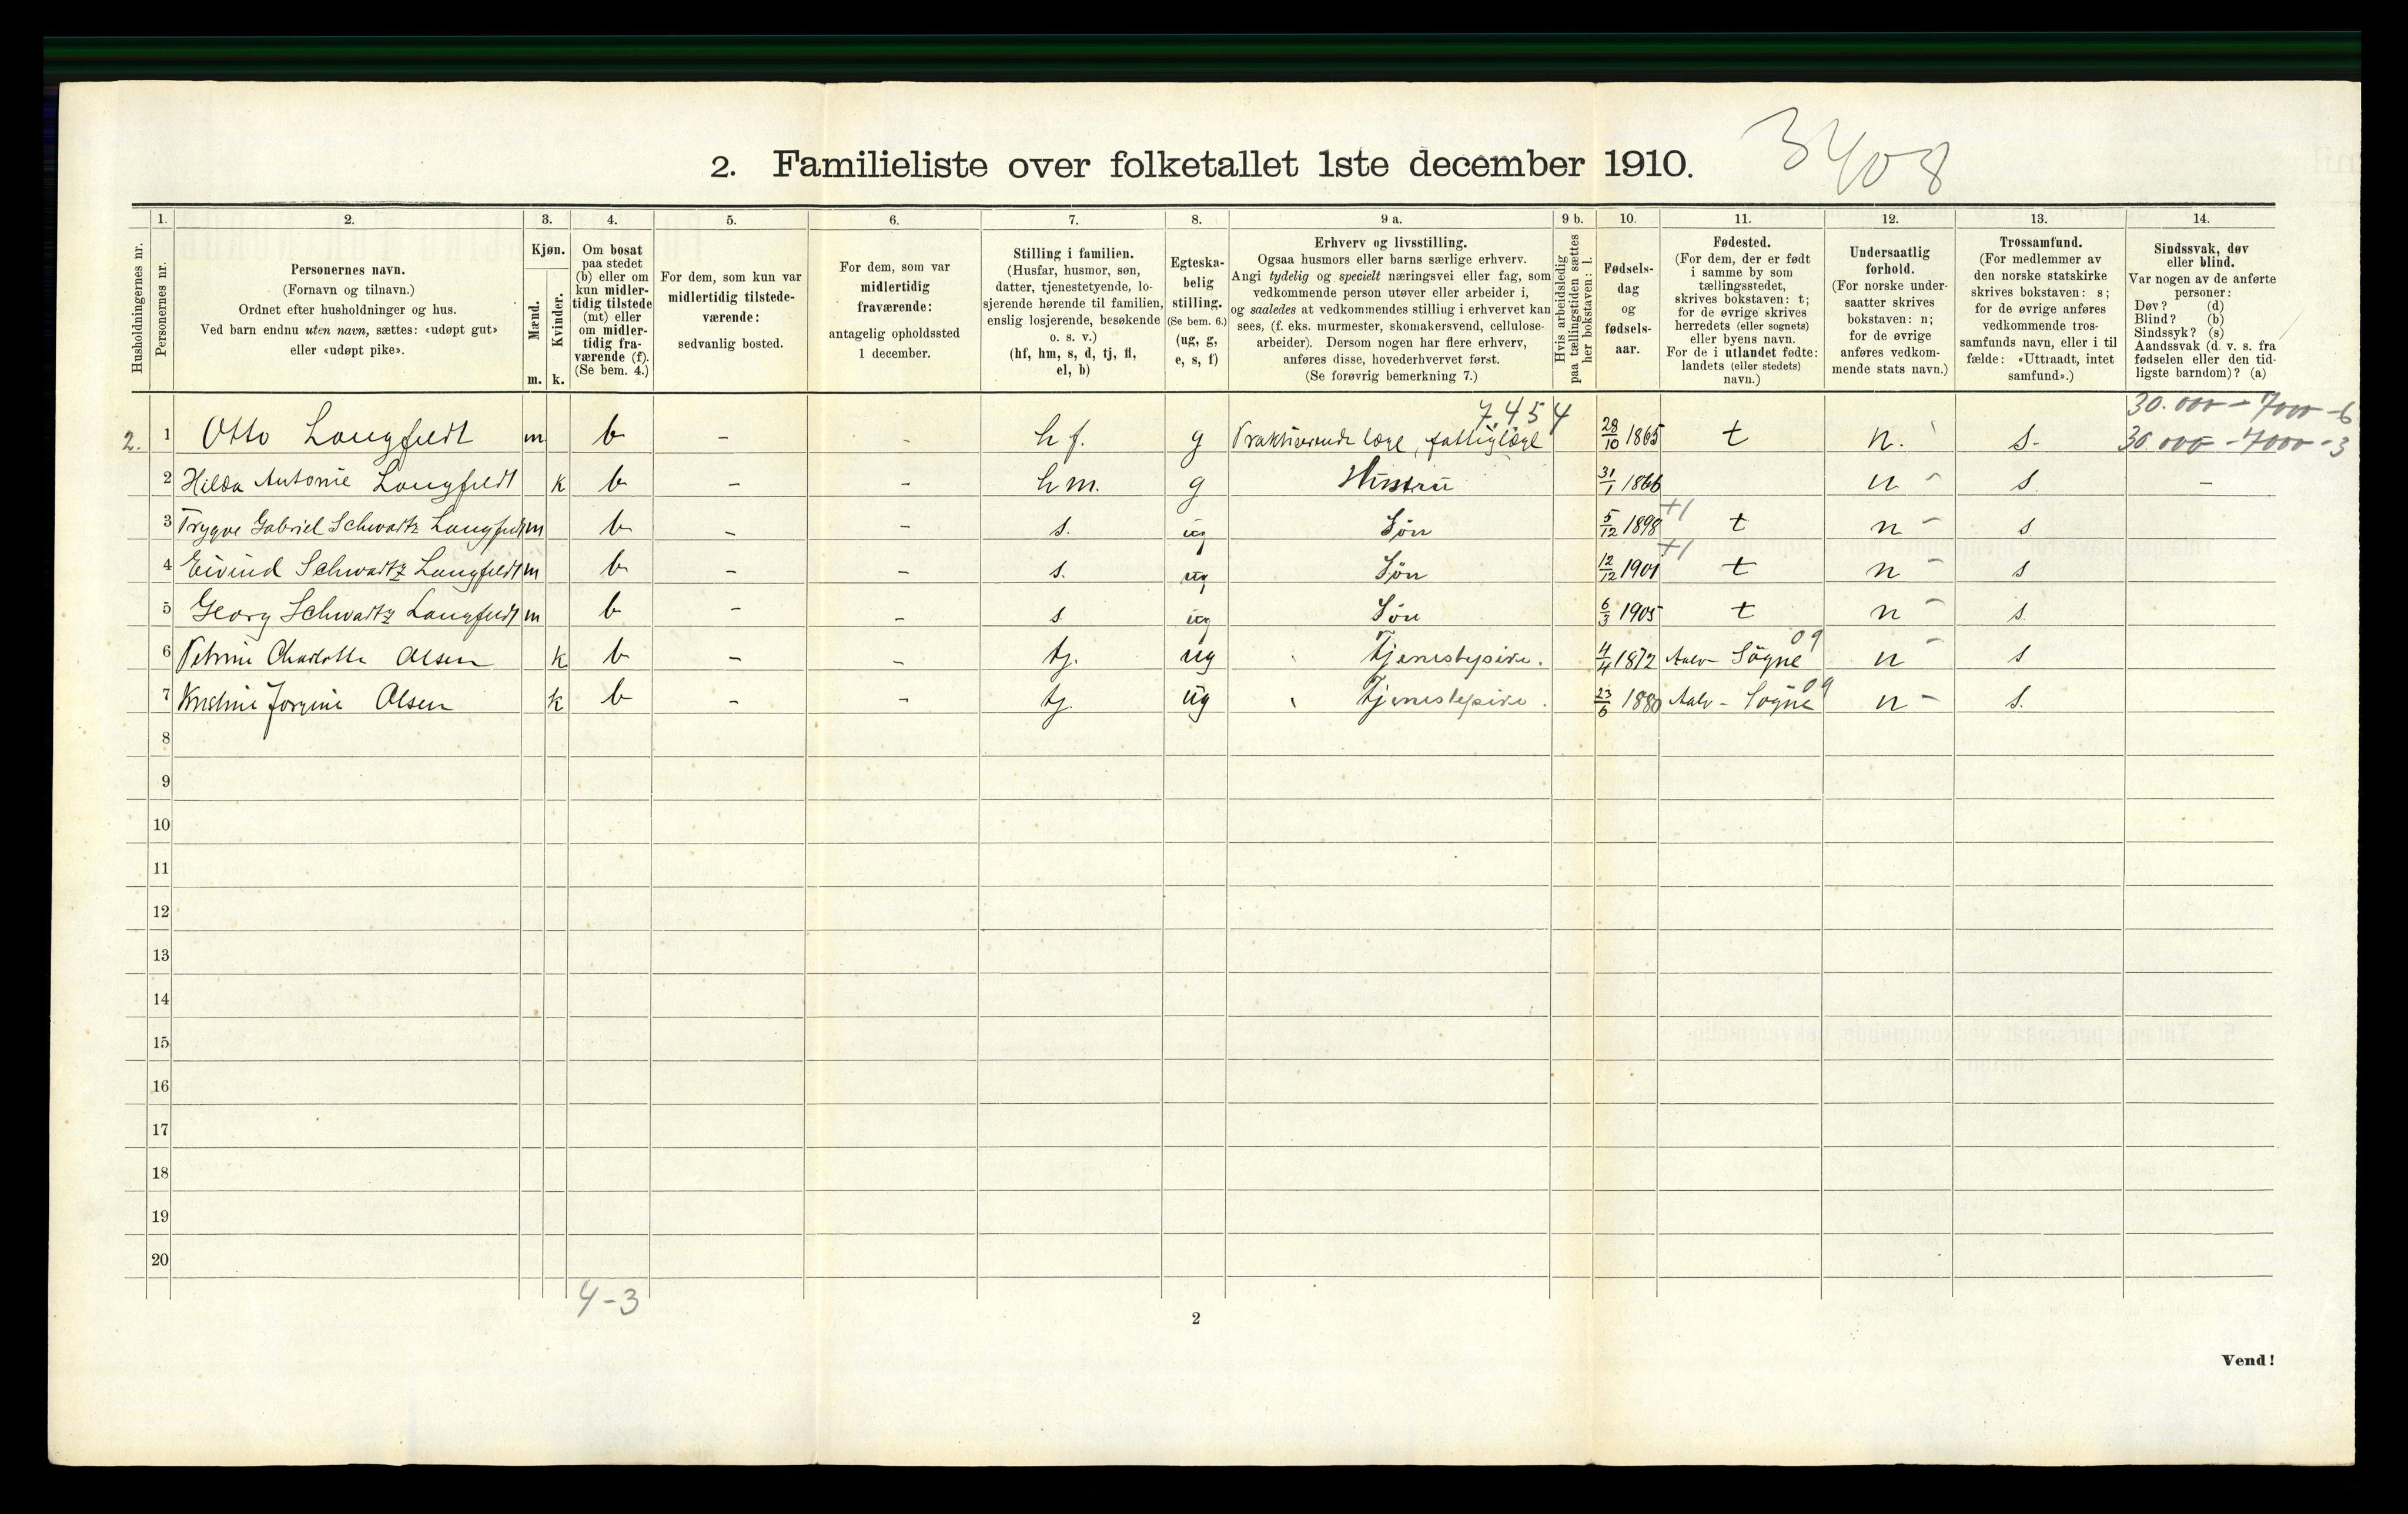 3408
2. Familieliste over folketallet 1ste december 1910.
Husholdningernes nr.
1.
Personernes nr.
2.
Personernes navn.
(Fornavn og tilnavn.)
Ordnet efter husholdninger og hus.
Ved barn endnu uten navn, sættes: «udøpt gut»
eller «udøpt pike».
3.
Kjøn.
Mænd.
Kvinder.
m. k.
4.
Om bosat
paa stedet
(b) eller om
kun midler-
tidig tilstede
(mt) eller
om midler-
tidig fra-
værende (f).
(Se bem. 4.)
5.
For dem, som kun var
midlertidig tilstede-
værende:
sedvanlig bosted.
6.
For dem, som var
midlertidig
fraværende:
antagelig opholdssted
1 december.
7.
Stilling i familien.
(Husfar, husmor, søn,
datter, tjenestetyende, lo-
sjerende hørende til familien,
enslig losjerende, besøkende
o. s. v.)
(hf, hm, s, d, tj, fl,
el, b)
8.
Egteska-
belig
stilling.
(Se bem. 6.)
(ug, g,
e, s, f)
9 a.
Erhverv og livsstilling.
Ogsaa husmors eller barns særlige erhverv.
Angi tydelig og specielt næringsvei eller fag, som
vedkommende person utøver eller arbeider i,
og saaledes at vedkommendes stilling i erhvervet kan
sees, (f. eks. murmester, skomakersvend, cellulose-
arbeider). Dersom nogen har flere erhverv,
anføres disse, hovederhvervet først.
(Se forøvrig bemerkning 7.)
9 b.
Hvis arbeidsledig
paa tællingstiden sættes
her bokstaven: l.
10.
Fødsels-
dag
og
fødsels-
aar.
11.
Fødested.
(For dem, der er født
i samme by som
tællingsstedet,
skrives bokstaven: t;
for de øvrige skrives
herredets (eller sognets)
eller byens navn.
For de i utlandet fødte:
landets (eller stedets)
navn.)
12.
Undersaatlig
forhold.
(For norske under-
saatter skrives
bokstaven: n;
for de øvrige
anføres vedkom-
mende stats navn.)
13.
Trossamfund.
(For medlemmer av
den norske statskirke
skrives bokstaven: s;
for de øvrige anføres
vedkommende tros-
samfunds navn, eller i til
fælde: «Uttraadt, intet
samfund».)
14.
Sindssvak, døv
eller blind.
Var nogen av de anførte
personer:
Døv? (d)
Blind? (b)
Sindssyk? (s)
Aandssvak (d. v. s. fra
fødselen eller den tid-
ligste barndom)? (a)
7.454
30.000 - 7000 - 6
2. 1 Otto Langfeldt m b - - hf. g Praktiserende læge, fattiglæge 28/10 1865 t n. s. 30.000 - 7000 - 3
2 Hilda Antonie Langfeldt k b - - hm. g Hustru 31/1 1866 n - s. -
3 Trygve Gabriel Schwartz Langfeldt m b - - s. ug Søn 5/12 1898 +1 t n - s
4 Eivind Schwartz Langfeldt m b - - s. ug Søn 12/12 1901 +1 t n - s
5 Georg Schwartz Langfeldt m b - - s ug Søn 6/3 1905 t n - s.
6 Petrine Charlotte Olsen k b - - tj. ug Tjenestepike. 4/4 1872 Søgne 09 n - s
7 Kristine Jorgine Olsen k b - - tj. ug Tjenestepike. 23/6 1880 Søgne 09 n - s.
8
9
10
11
12
13
14
15
16
17
18
19
20
4-3
2
Vend!